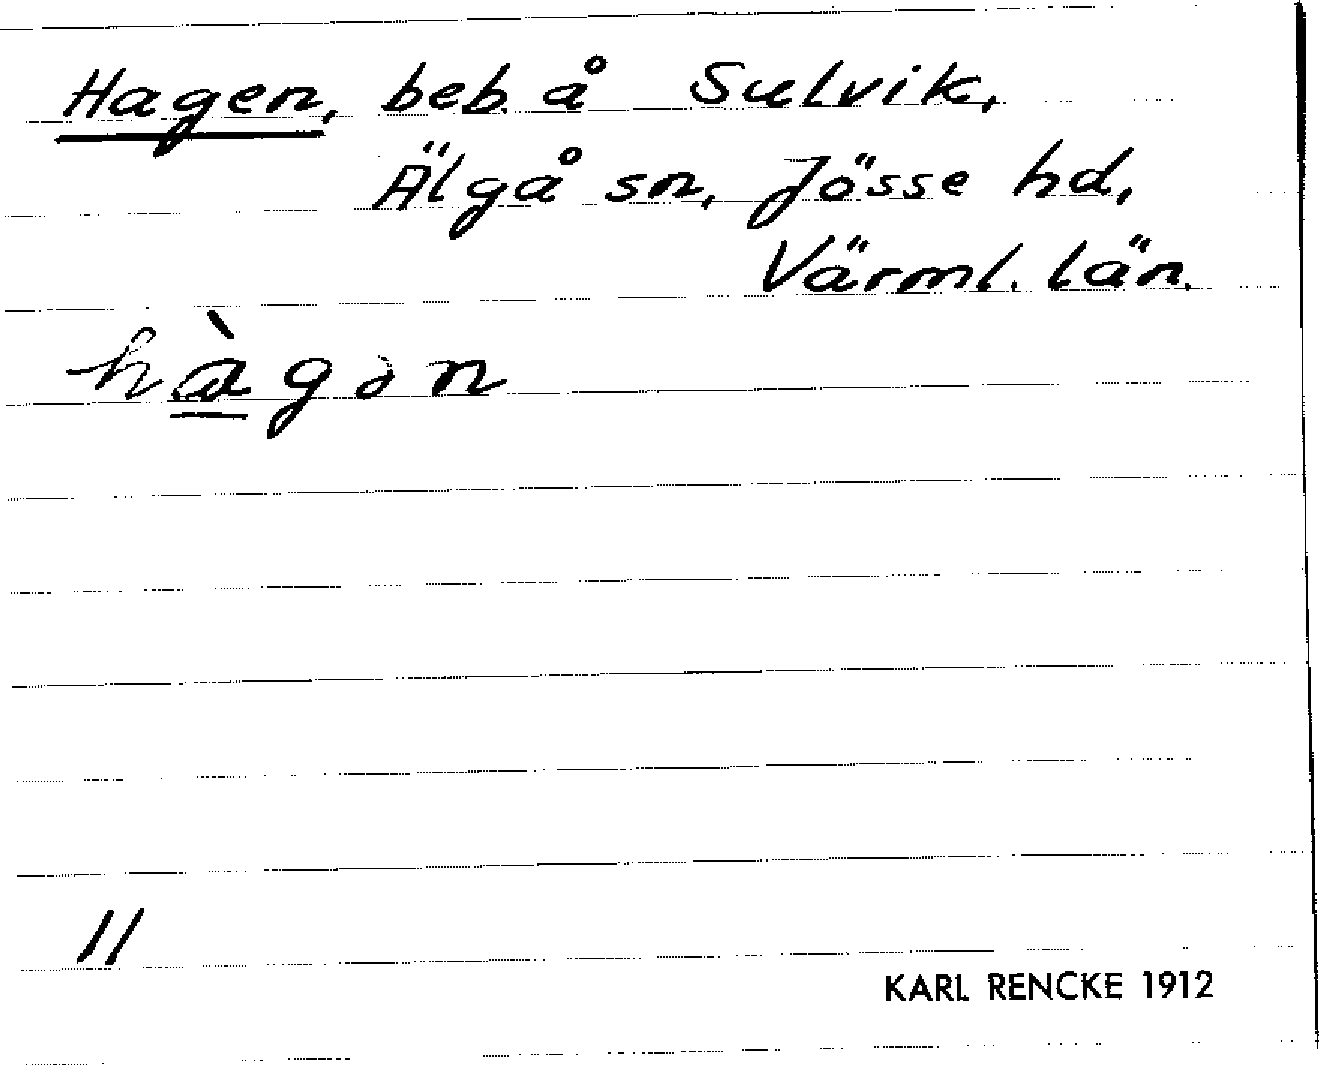 Hagen, beb. å Sulvik,
Älgå sn, Jösse hd,
Värml. län.
hàgən
11
KARL RENCKE 1912